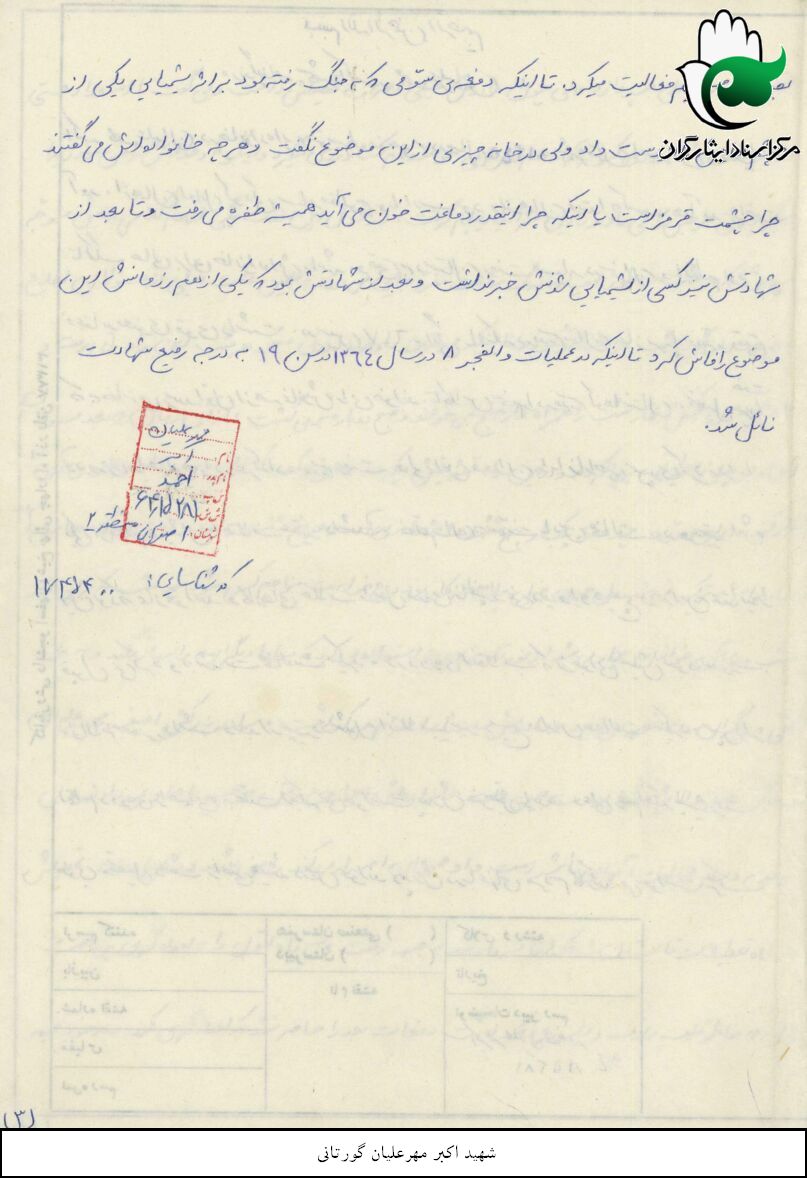 فعالیت میکرد، تا اینکه دفعه‌ی سومی که به جنگ رفته بود بر اثر شیمیایی یکی از
دست داد ولی در خانه چیزی از این موضوع نگفت و هر چه خانواده‌اش می‌گفتند
چرا چشمت قرمز است یا اینکه چرا اینقدر دماغت خون می‌آید همیشه طفره می‌رفت و تا بعد از
شهادتش نیز کسی از شیمیایی شدنش خبر نداشت و بعد از شهادتش بود که یکی از هم رزمانش این
موضوع را فاش کرد تا اینکه در عملیات والفجر ۸ در سال ۱۳۶۴ در سن ۱۹ به درجه رفیع شهادت
نائل شد.
مرکز اسناد ایثارگران
مهرعلیان
نام: اکبر
احمد
کد شناسایی: ۱۷۴۵۴۰۰
(۳)
شهید اکبر مهرعلیان گورتانی